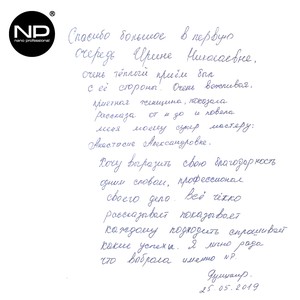 NP
nano professional
Спасибо большое в первую
очередь Ирине Николаевне,
очень тёплый приём был
с её стороны. Очень вежливая,
приятная женщина, показала
рассказа от и до и повела
меня моему супер мастеру:
Анастасие Александровне.
Хочу выразить свою благодарность
одним словом, профессионал
своего дела всё чётко
рассказывает показывает
каждому подходит спрашивает
какие успехи. Я лично рада
что выбрала именно NP
25.05.2019